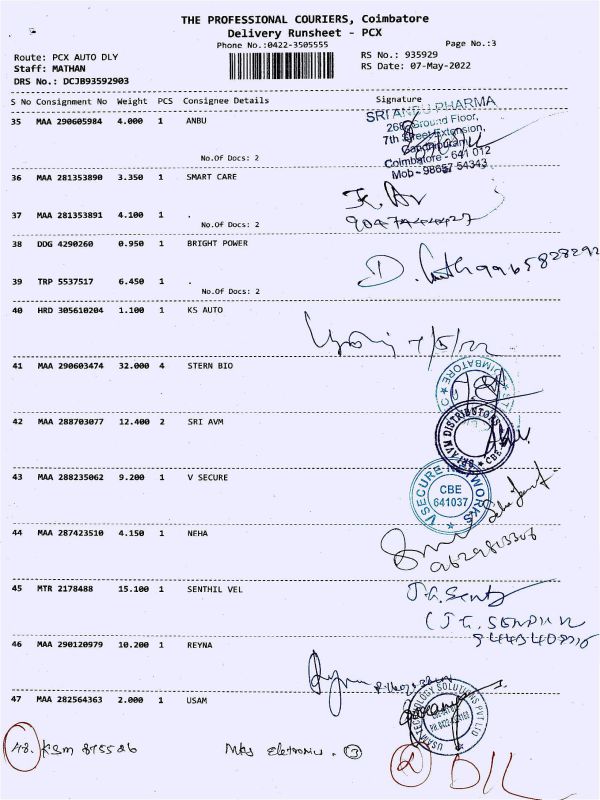 THE PROFESSIONAL COURIERS, Coimbatore
Delivery Runsheet - PCX
Phone No.:0422-3505555
Page No.:3
Route: PCX AUTO DLY
RS No.: 935929
Staff: MATHAN
RS Date: 07-May-2022
DRS No.: DCJB93592903
S No Consignment No Weight PCS Consignee Details Signature
35 MAA 290605984 4.000 1 ANBU
No.Of Docs: 2
SRI ANBU PHARMA
268, Ground Floor,
7th Street Extension,
Gandhipuram,
Coimbatore - 641 012
Mob - 98657 54343
36 MAA 281353890 3.350 1 SMART CARE
37 MAA 281353891 4.100 1 .
No.Of Docs: 2
38 DDG 4290260 0.950 1 BRIGHT POWER
39 TRP 5537517 6.450 1 .
No.Of Docs: 2
40 HRD 305610204 1.100 1 KS AUTO
7/5/22
41 MAA 290603474 32.000 4 STERN BIO
COIMBATORE
42 MAA 288703077 12.400 2 SRI AVM
SRI AVM DISTRIBUTORS
CBE
43 MAA 288235062 9.200 1 V SECURE
VSECURE NETWORKS
CBE
641037
44 MAA 287423510 4.150 1 NEHA
45 MTR 2178488 15.100 1 SENTHIL VEL
46 MAA 290120979 10.200 1 REYNA
47 MAA 282564363 2.000 1 USAM
USAM TECHNOLOGY SOLUTIONS PVT LTD
48. KSM 875526 Mks Eletronics. 3